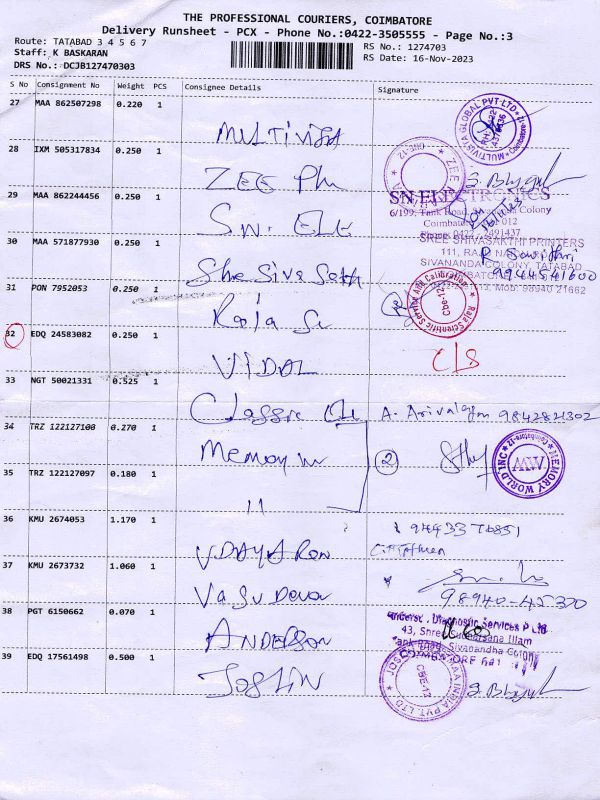 THE PROFESSIONAL COURIERS, COIMBATORE
Delivery Runsheet - PCX - Phone No.:0422-3505555 - Page No.:3
Route: TATABAD 3 4 5 6 7
RS No.: 1274703
Staff: K BASKARAN
RS Date: 16-Nov-2023
DRS No.: DCJB127470303
S No Consignment No Weight PCS Consignee Details Signature
27 MAA 862507298 0.220 1 MULTIVISTA
MULTIVISTA GLOBAL PVT. LTD
28 IXM 505317834 0.250 1 ZEE Ph
ZEE
29 MAA 862244456 0.250 1 S.N. ELE
SN ELECTRONICS
6/199, Tank Road, Colony
Phone: 0422
30 MAA 571877930 0.250 1 Shesivasakth
SREE SHIVASAKTHI PRINTERS
SIVANANDA COLONY, TATABAD
Mob: 98940 21662
31 PON 7952053 0.250 1 Raja Sc
Raja Scientific Service And Calibration
Cbe-12
32 EDQ 24583082 0.250 1 VIDAL C/S
33 NGT 50021331 0.525 1 Classic A. Arivalagan 9842821302
34 TRZ 122127100 0.270 1 Memory w 2
MEMORY WORLD INC
Coimbatore-12
MW
35 TRZ 122127097 0.180 1 11
36 KMU 2674053 1.170 1 UDAYA Ron
37 KMU 2673732 1.060 1 Vasu Deva
98940-42300
38 PGT 6150662 0.070 1 ANDERSON
Diagnostic Services P Ltd
43, Shree Sudharsana Illam
Tank Road, Sivanandha Colony
COIMBATORE
39 EDQ 17561498 0.500 1 JOSLIN
INDIA PVT. LTD
CBE-12